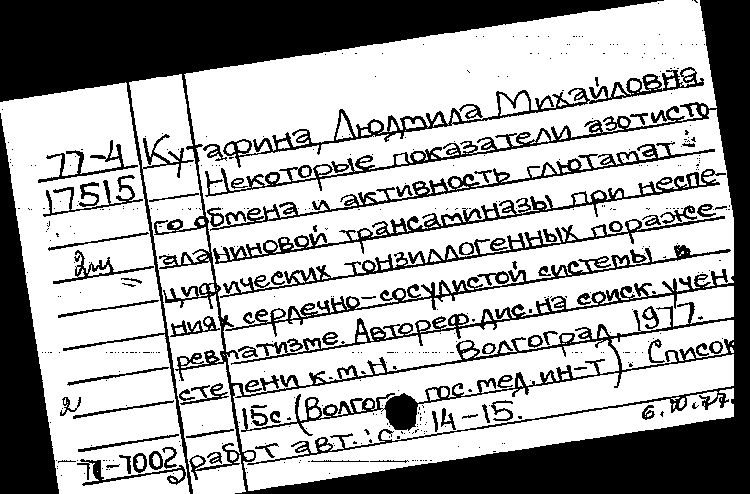 77-4 Кутафина, Людмила Михайловна.
17515 Некоторые показатели азотисто-
го обмена и активность глютамат-
аланиновой трансаминазы при неспе-
цифических тонзиллогенных пораже-
ниях сердечно-сосудистой системы и
ревматизме. Автореф. дис. на соиск. учен.
степени к.м.н. Волгоград, 1977.
2 15с. (Волгогр. гос. мед. ин-т). Список
работ авт.: с. 14-15.
77-7002 6.10.77.